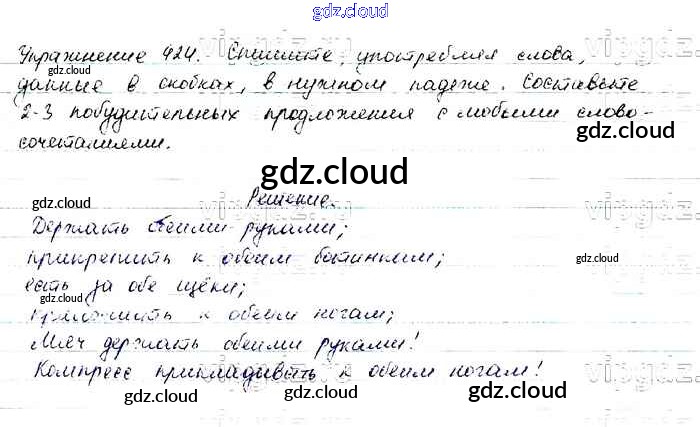 gdz.cloud
Упражнение 424. Спишите, употребляя слова,
данные в скобках, в нужном падеже. Составьте
2-3 побудительных предложения с любыми слово-
сочетаниями.
gdz.cloud
gdz.cloud
gdz.cloud
Решение.
gdz.cloud
Держать обеими руками;
прикрепить к обеим ботинкам;
gdz.cloud
gdz.cloud
есть за обе щёки;
приложить к обеим ногам;
gdz.cloud
gdz.cloud
Мяч держать обеими руками!
gdz.cloud
Компресс прикладывать к обеим ногам!
gdz.cloud
gdz.cloud